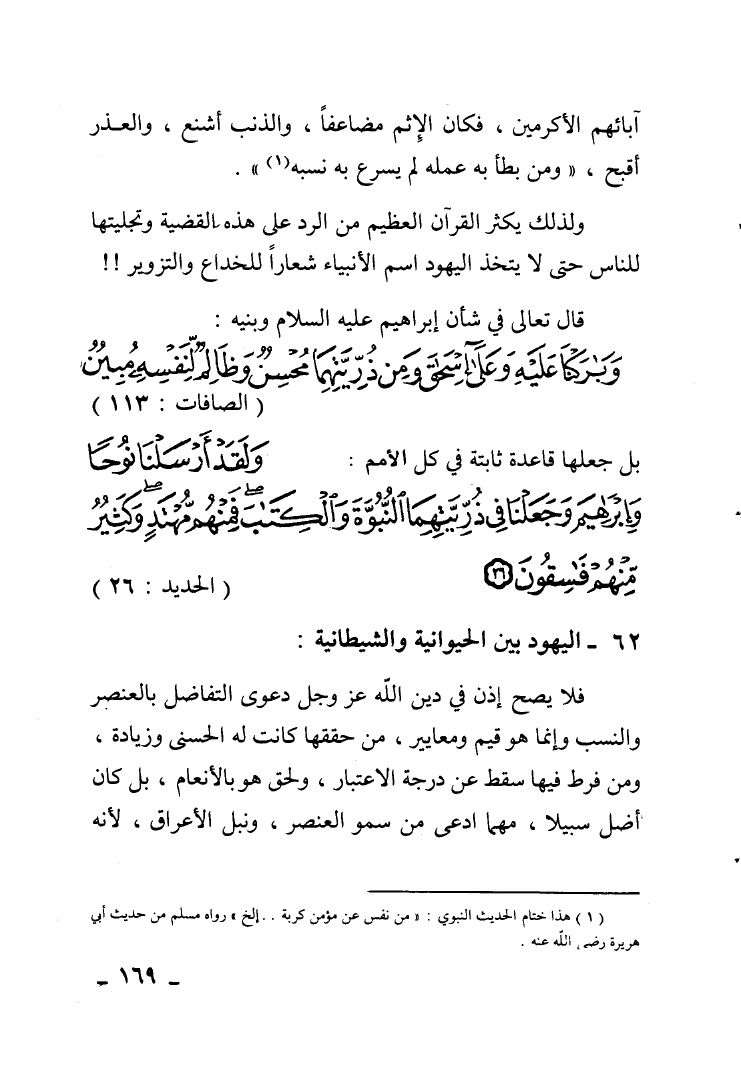 آبائهم الأكرمين ، فكان الإثم مضاعفاً ، والذنب أشنع ، والعـذر
أقبح ، « ومن بطأ به عمله لم يسرع به نسبه(١) » .
ولذلك يكثر القرآن العظيم من الرد على هذه القضية وتجليتها
للناس حتى لا يتخذ اليهود اسم الأنبياء شعاراً للخداع والتزوير !!
قال تعالى في شأن إبراهيم عليه السلام وبنيه :
وَبَٰرَكْنَا عَلَيْهِ وَعَلَىٰٓ إِسْحَٰقَ وَمِن ذُرِّيَّتِهِمَا مُحْسِنٌ وَظَالِمٌ لِّنَفْسِهِۦ مُبِينٌ
( الصافات : ١١٣ )
بل جعلها قاعدة ثابتة في كل الأمم : وَلَقَدْ أَرْسَلْنَا نُوحًا
وَإِبْرَٰهِيمَ وَجَعَلْنَا فِى ذُرِّيَّتِهِمَا ٱلنُّبُوَّةَ وَٱلْكِتَٰبَ ۖ فَمِنْهُم مُّهْتَدٍ ۖ وَكَثِيرٌ
مِّنْهُمْ فَٰسِقُونَ ٢٦ ( الحديد : ٢٦ )
٦٢ ـ اليهود بين الحيوانية والشيطانية :
فلا يصح إذن في دين الله عز وجل دعوى التفاضل بالعنصر
والنسب وإنما هو قيم ومعايير ، من حققها كانت له الحسنى وزيادة ،
ومن فرط فيها سقط عن درجة الاعتبار ، ولحق هو بالأنعام ، بل كان
أضل سبيلا ، مهما ادعى من سمو العنصر ، ونبل الأعراق ، لأنه
( ١ ) هذا ختام الحديث النبوي : « من نفس عن مؤمن كربة . . إلخ » رواه مسلم من حديث أبي
هريرة رضي الله عنه .
ـ ١٦٩ ـ